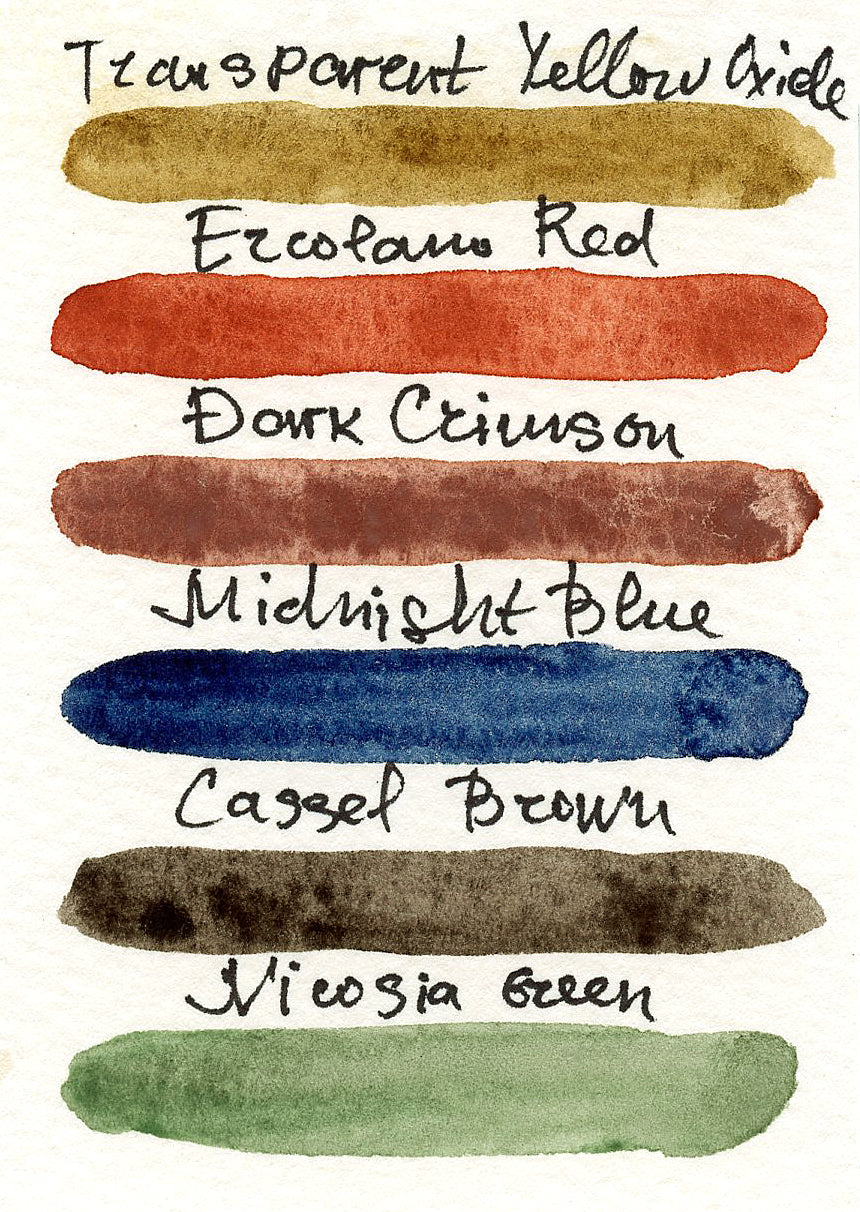 Transparent Yellow Oxide
Ercolano Red
Dark Crimson
Midnight Blue
Cassel Brown
Nicosia Green